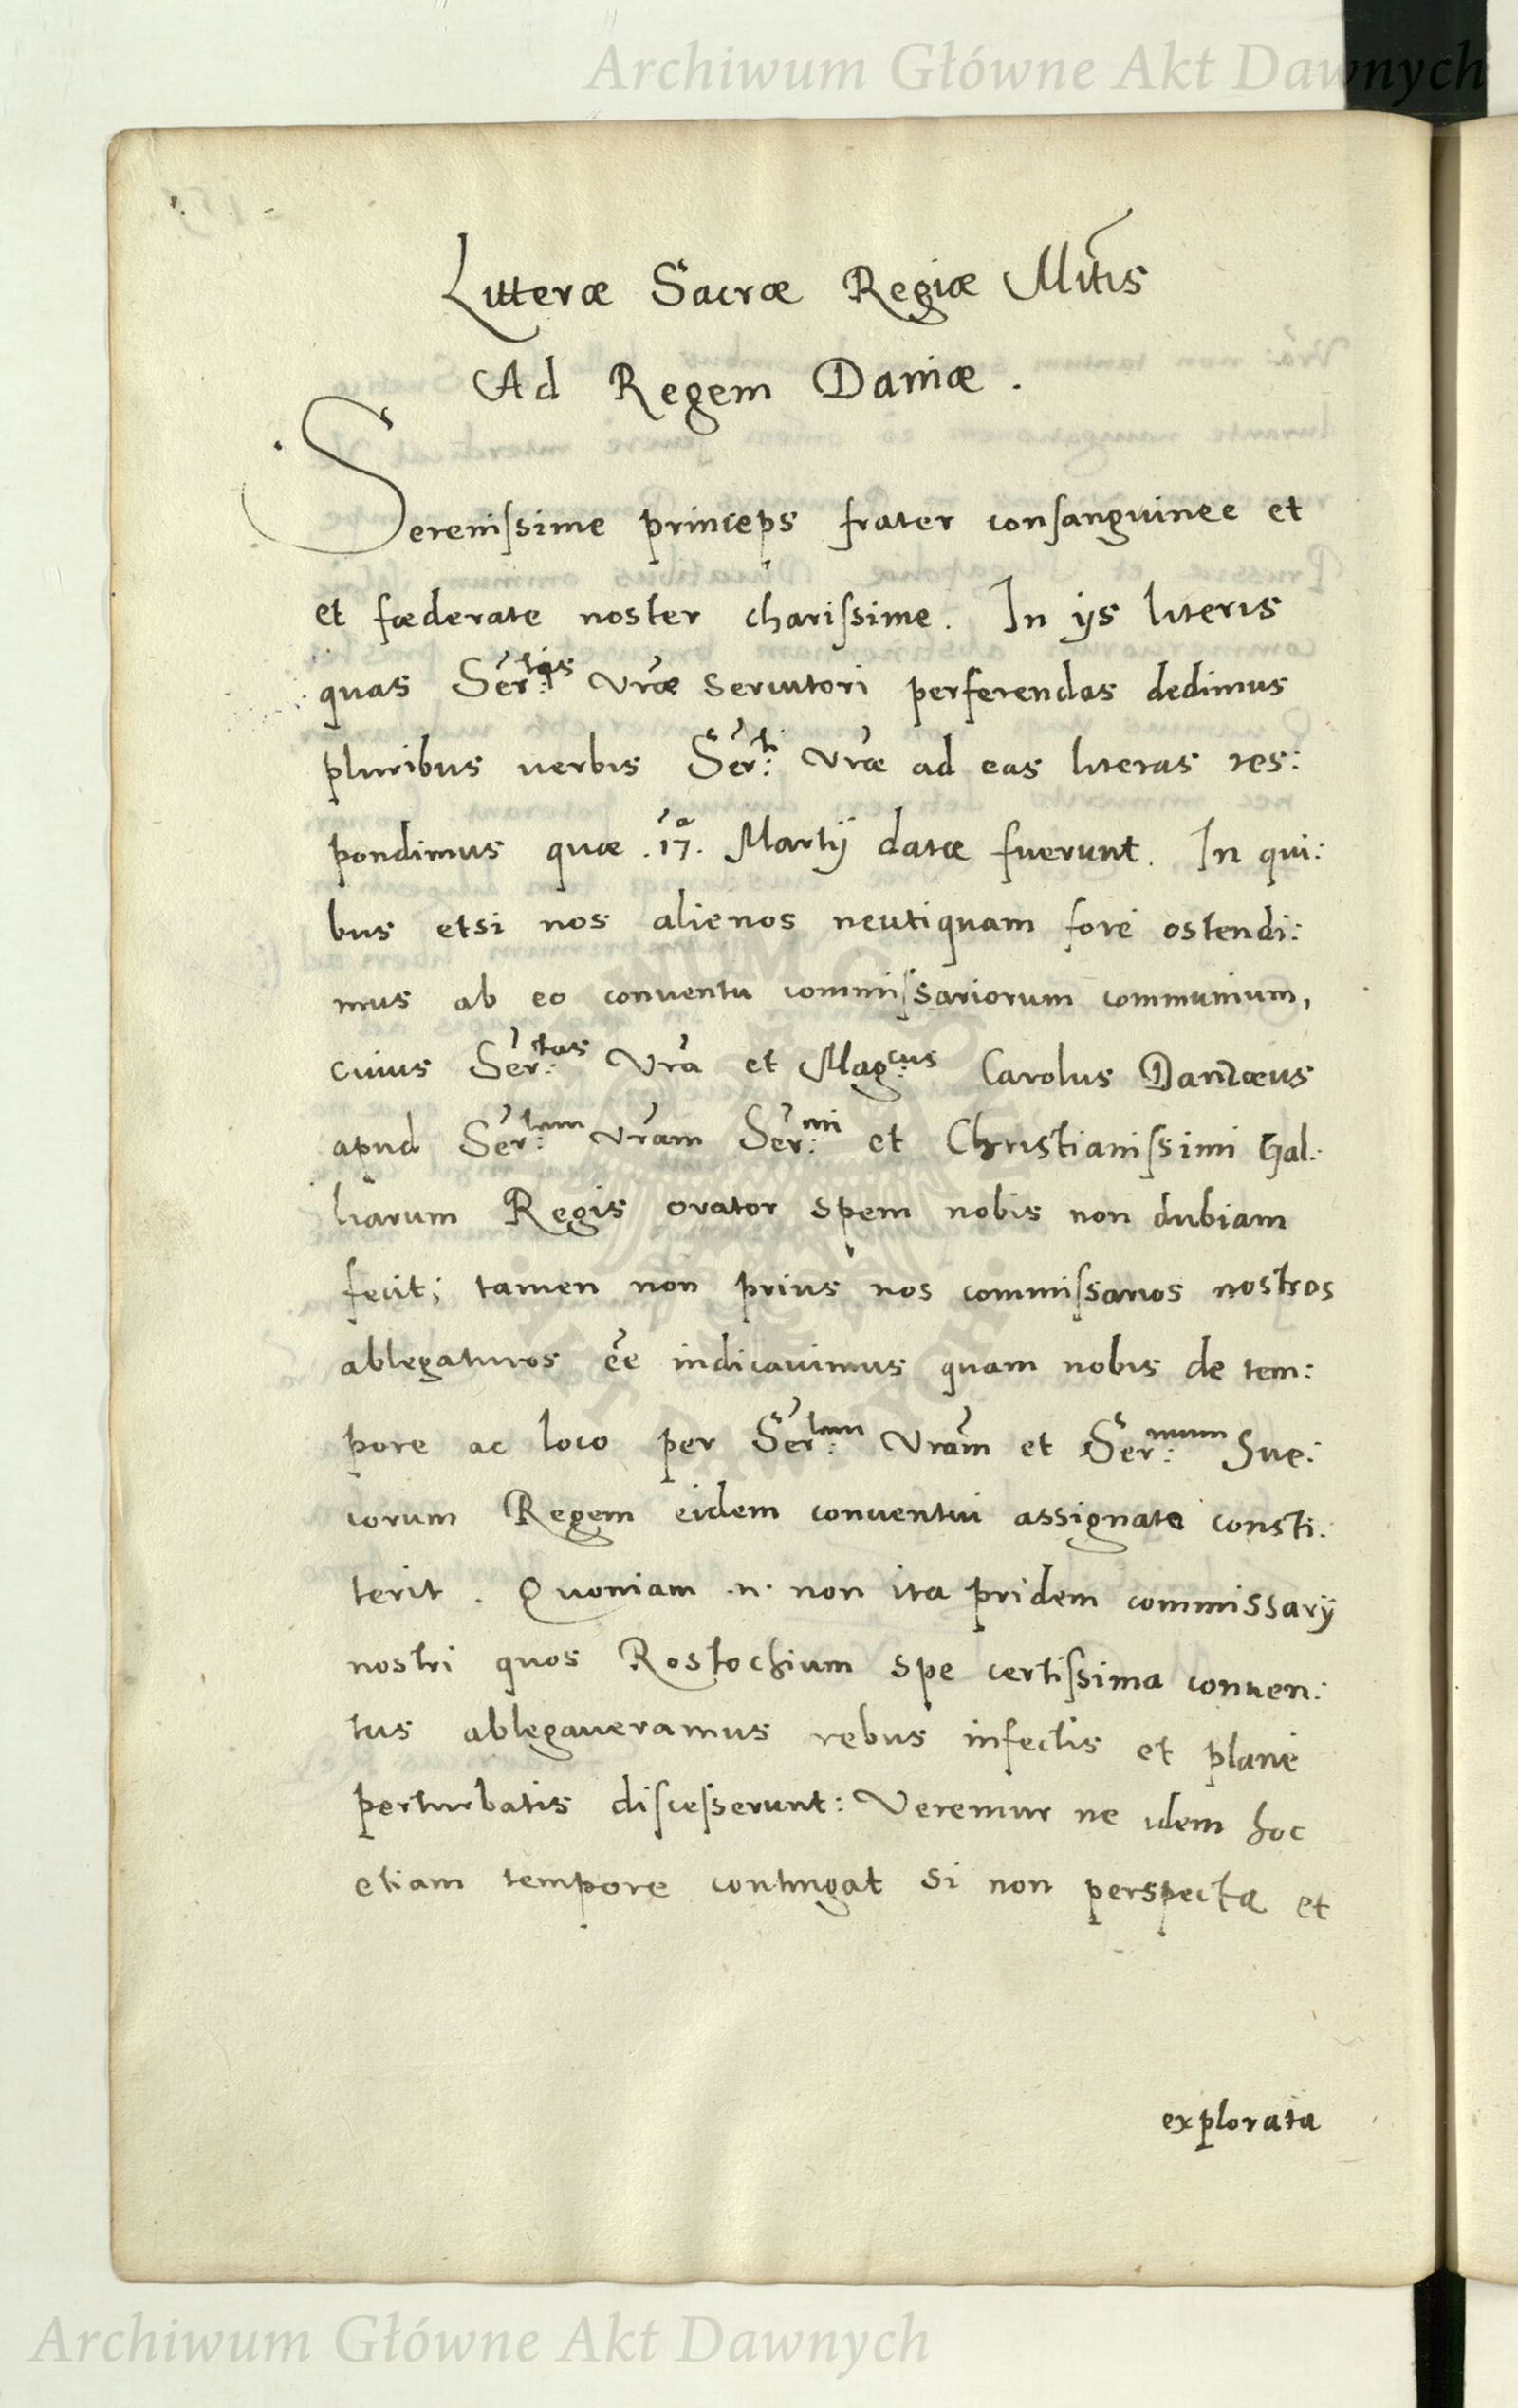 Archiwum Główne Akt Dawnych
Litteræ Sacræ Regiæ Mtis
Ad Regem Daniæ .
Sereniſsime princeps frater conſanguinee et
et fœderate noster chariſsime . In ijs literis
quas Ser:tis Vræ seruitori perferendas dedimus
pluribus uerbis Ser:ti Vræ ad eas literas res:
pondimus quæ .17.a Martij datæ fuerunt . In qui:
bus etsi nos alienos neutiquam forè ostendi:
mus ab eo conuentu commiſsariorum communium,
cuius Ser:tas Vra et Mag:cus Carolus Danzæus
apud Ser:tem Vram Ser:mi et Christianiſsimi Gal:
liarum Regis orator spem nobis non dubiam
fecit; tamen non prius nos commiſsarios nostros
ablegaturos eẽ indicauimus quam nobis de tem:
pore ac loco per Ser:tem Vram et Ser:mum Sue:
corum Regem eidem conuentui assignato consti:
terit . Quoniam .n. non ita pridem commissarij
nostri quos Rostochium spe certiſsima conuen:
tus ablegaueramus rebus infectis et planè
perturbatis diſceſserunt: Veremur ne idem hoc
etiam tempore contingat si non perspecta et
explorata
Archiwum Główne Akt Dawnych